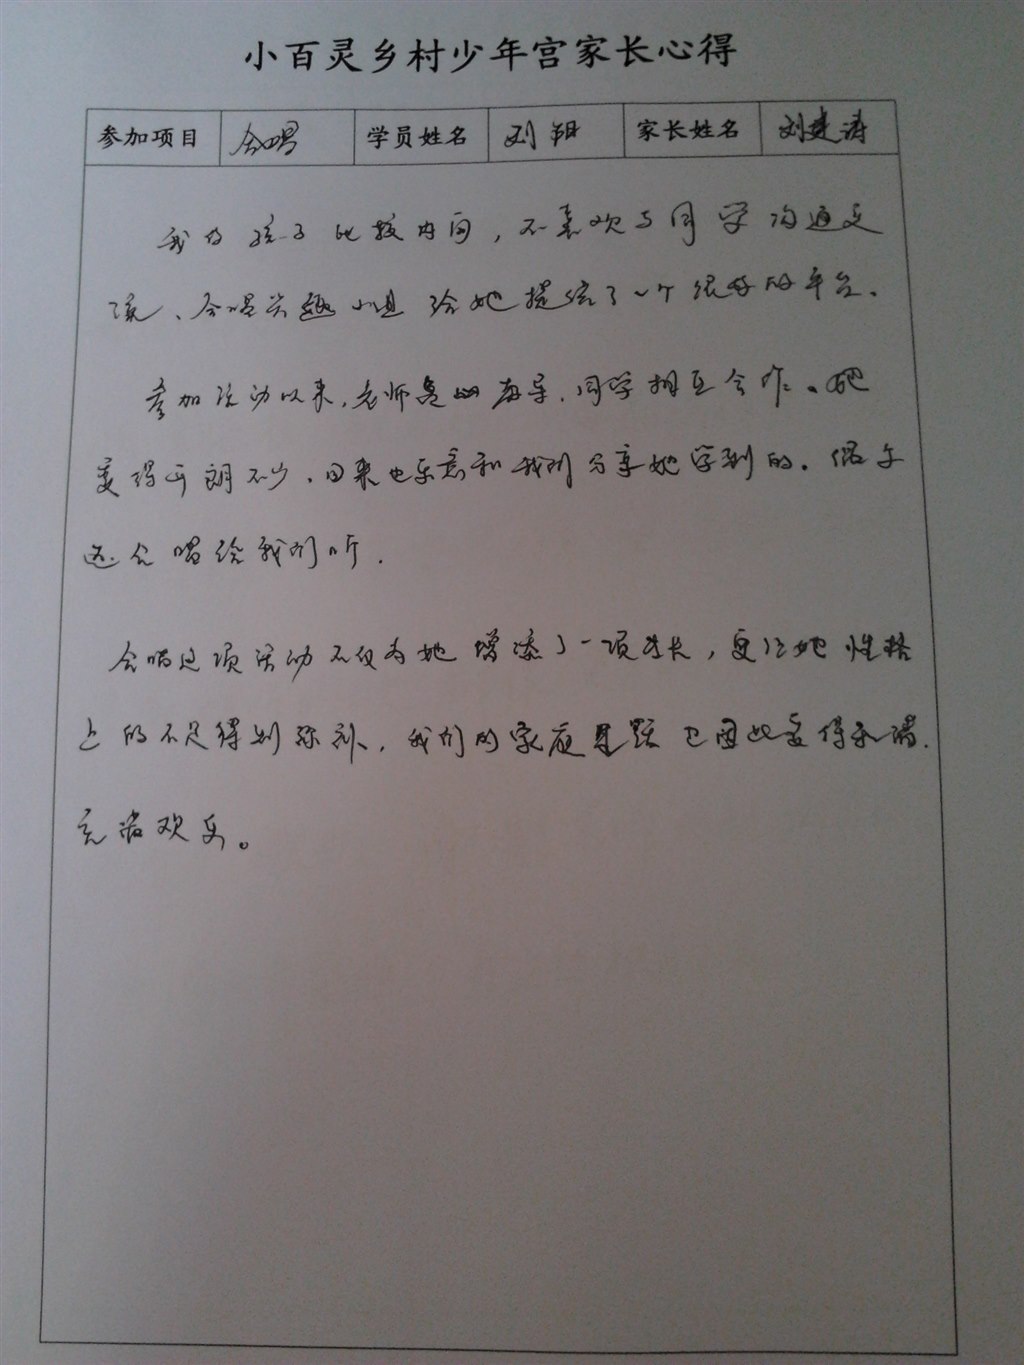 小百灵乡村少年宫家长心得
参加项目 合唱 学员姓名 刘 家长姓名 刘建涛
我的孩子比较内向，不喜欢与同学沟通交
流、合唱兴趣小组给她提供了一个很好的平台。
参加活动以来，老师教导，同学相互合作。她
变得开朗不少，回来也乐意和我们分享她学到的。偶尔
还会唱给我们听.
合唱这项活动不仅为她增添了一项特长，更让她性格
上的不足得到弥补，我们的家庭也因此变得和谐.
充满欢乐。